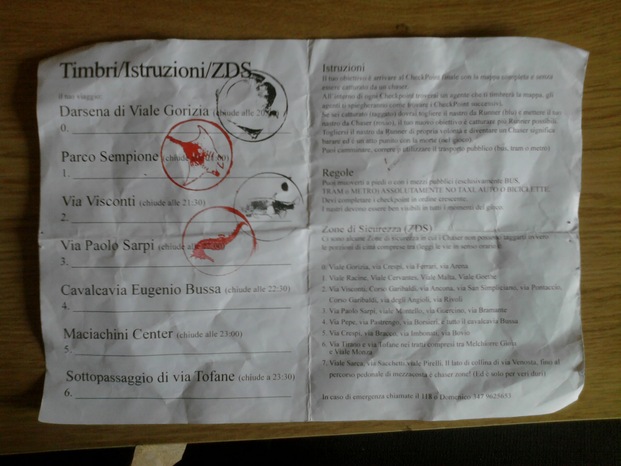 Timbri/Istruzioni/ZDS
il tuo viaggio:
Darsena di Viale Gorizia (chiude alle
0.
Parco Sempione (chiude
1.
Via Visconti (chiude alle 21:30)
2.
Via Paolo Sarpi (chiude alle 22:00)
3.
Cavalcavia Eugenio Bussa (chiude alle 22:30)
4.
Maciachini Center (chiude alle 23:00)
5.
Sottopassaggio di via Tofane (chiude a 23:30)
6.
Istruzioni
Il tuo obiettivo è arrivare al CheckPoint finale con la mappa completa e senza
essere catturato da un chaser.
All'interno di ogni Checkpoint troverai un agente che ti timbrerà la mappa, gli
agenti ti spiegheranno come trovare i CheckPoint successivi.
Se sei catturato (taggato) dovrai togliere il nastro da Runner (blu) e mettere il tuo
nastro da Chaser (rosso), il tuo nuovo obiettivo è catturare più Runner possibili.
Togliersi il nastro da Runner di propria volontà e diventare un Chaser significa
barare ed è un atto punito con la morte (nel gioco).
Puoi camminare, correre o utilizzare il trasporto pubblico (bus, tram o metro)
Regole
Puoi muoverti a piedi o con i mezzi pubblici (esclusivamente BUS,
TRAM e METRO) ASSOLUTAMENTE NO TAXI, AUTO O BICICLETTE.
Devi completare i checkpoint in ordine crescente.
I nastri devono essere ben visibili in tutti i momenti del gioco.
Zone di Sicurezza (ZDS)
Ci sono alcune Zone di sicurezza in cui i Chaser non possono taggarti ovvero
le porzioni di città comprese tra (leggi le vie in senso orario):
0. Viale Gorizia, via Crespi, via Ferrari, via Arena
1. Viale Racine, Viale Cervantes, Viale Malta, Viale Goethe
2. Via Visconti, Corso Garibaldi, via Ancona, via San Simpliciano, via Pontaccio,
Corso Garibaldi, via degli Angioli, via Rivoli
3. Via Paolo Sarpi, viale Montello, via Guercino, via Bramante
4. Via Pepe, via Pastrengo, via Borsieri, e tutto il cavalcavia Bussa.
5. Via Crespi, via Bracco, via Imbonati, via Bovio
6. Via Tirano e via Tofane nel tratto compresi tra Melchiorre Gioia
e Viale Monza
7. Viale Sarca, via Sacchetti, viale Pirelli. Il lato di collina di via Venosta, fino al
percorso pedonale di mezzacosta è chaser zone! (Ed è solo per veri duri)
In caso di emergenza chiamate il 118 o Domenico 347 9625653